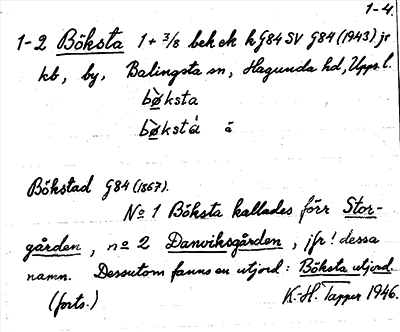 1-4.
1-2 Böksta 1 + 3/8 bek ek k G84 SV G84 (1943) jr
kb, by, Balingsta sn, Hagunda hd, Upps. l.
bø̀ksta
bø̀kstá ä
Bökstad G84 (1867).
No 1 Böksta kallades förr Stor-
gården, no 2 Danviksgården, jfr! dessa
namn. Dessutom fanns en utjord: Böksta utjord.
(forts.) K.-H. Tapper 1946.